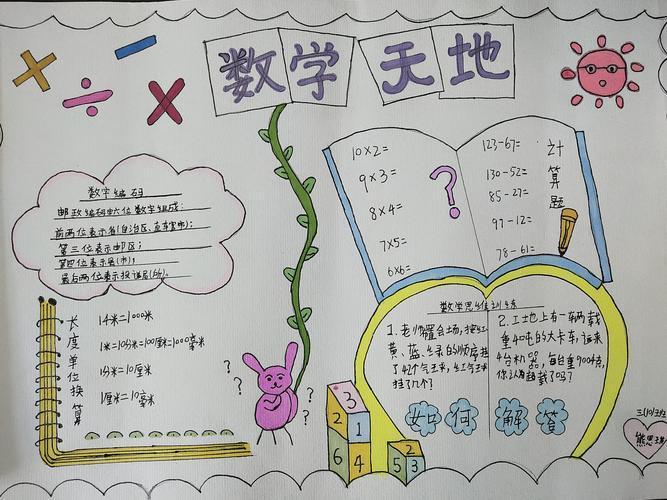 数学天地
数字编码
邮政编码由六位数字组成:
前两位表示省(自治区、直辖市);
第三位表示邮区;
第四位表示县(市);
最后两位表示投递局(所).
长度单位换算
1千米=1000米
1米=10分米=100厘米=1000毫米
1分米=10厘米
1厘米=10毫米
10×2=
9×3=
8×4=
7×5=
6×6=
?
123-67=
130-52=
85-27=
97-12=
78-61=
计算题
数学思维训练
1.老师布置会场,按红
黄、蓝、绿的顺序挂
了42个气球,红气球
挂了几个?
2.工地上有一辆载
重4吨的大卡车,运来
4台机器,每台重900千克,
你认为超载了吗?
如何解答
?
?
?
?
3
2
1
6
4
2
5
3
三(10)班
熊